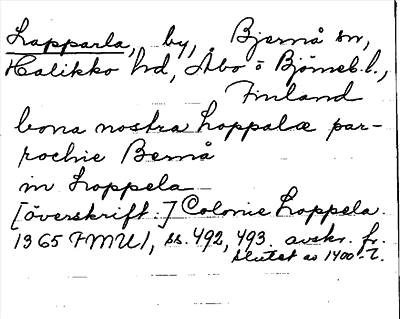 Lapparla, by, Bjernå sn,
Halikko hd, Åbo o Björneb. l.,
Finland
bona nostra Loppalæ par-
rochie Bernå
in Loppela
[överskrift:] Colonie Loppela
1365 FMU I, ss. 492, 493. avskr. fr.
slutet av 1400-t.